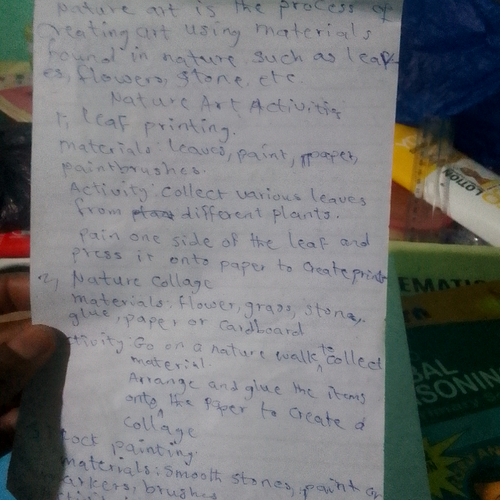 Nature art is the process of
creating art using materials
found in nature such as leaf
es, flowers, stone, etc.
Nature Art Activities
1, leaf printing.
materials: leaves, paint, paper,
paintbrushes.
Activity: Collect various leaves
from different plants.
pain one side of the leaf and
press it onto paper to create prints
2, Nature Collage
materials: flower, grass, stone,
glue, paper or Cardboard
ctivity: Go on a nature walk to collect
material.
Arrange and glue the items
onto the paper to create a
Collage
rock painting
materials: Smooth stones, paint or
arkers, brushes
LOTION
EMATI
BAL
SONIN